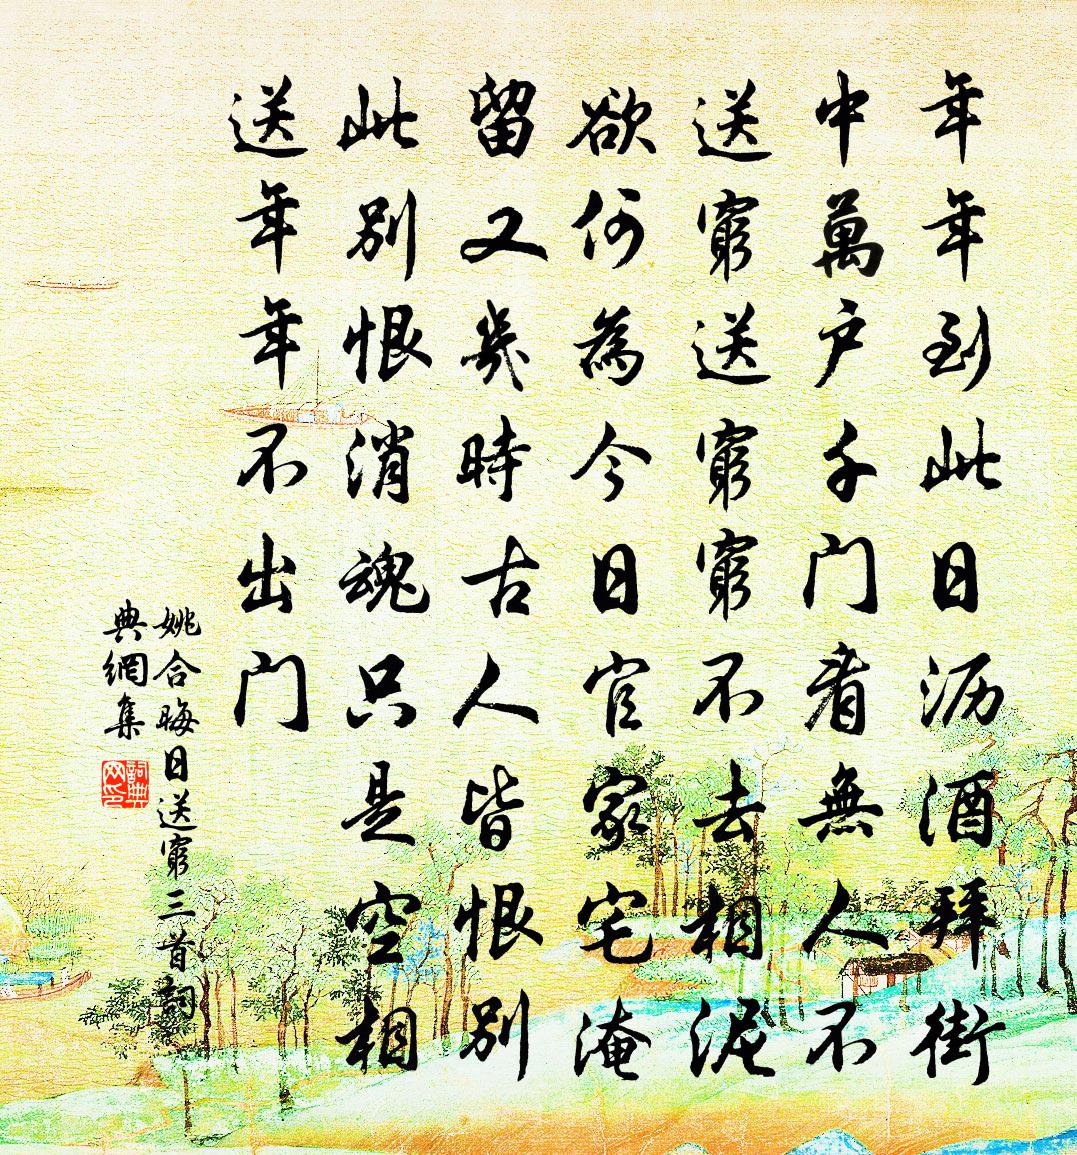 年年到此日沥酒拜街
中萬户千门看無人不
送窮送窮窮不去相泥
欲何為今日官家宅淹
留又幾時古人皆恨別
此別恨消魂只是空相
送年年不出门
姚合晦日送窮三首詞
典網集
詞典
网印